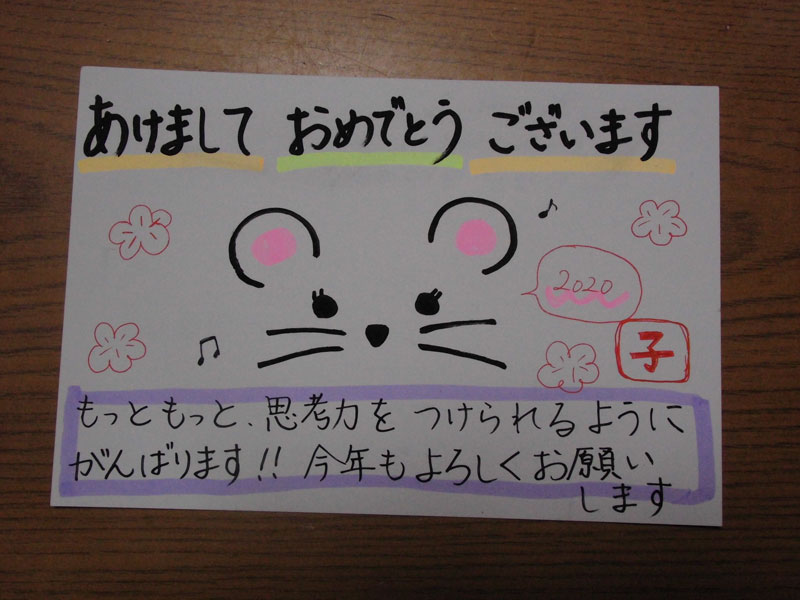 あけまして おめでとう ございます
2020
子
もっともっと、思考力を つけられるように
がんばります!! 今年もよろしくお願い
します